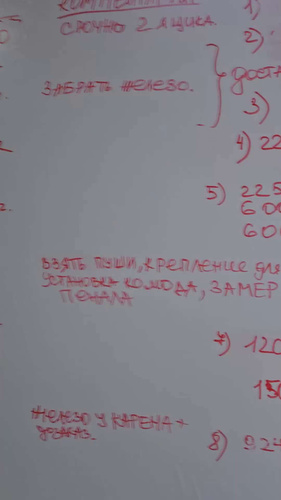 1)
СРОЧНО 2 ЯЩИКА
2)
ЗАБРАТЬ ЖЕЛЕЗО.
ДОСТА
3)
4) 22
5) 225
600
600
ВЗЯТЬ ПУШИ, КРЕПЛЕНИЕ ДЛЯ
УСТАНОВКА КОМОДА, ЗАМЕР
ПЕНАЛА
7) 120
150
ЖЕЛЕЗО У КАРЕНА +
8) 924